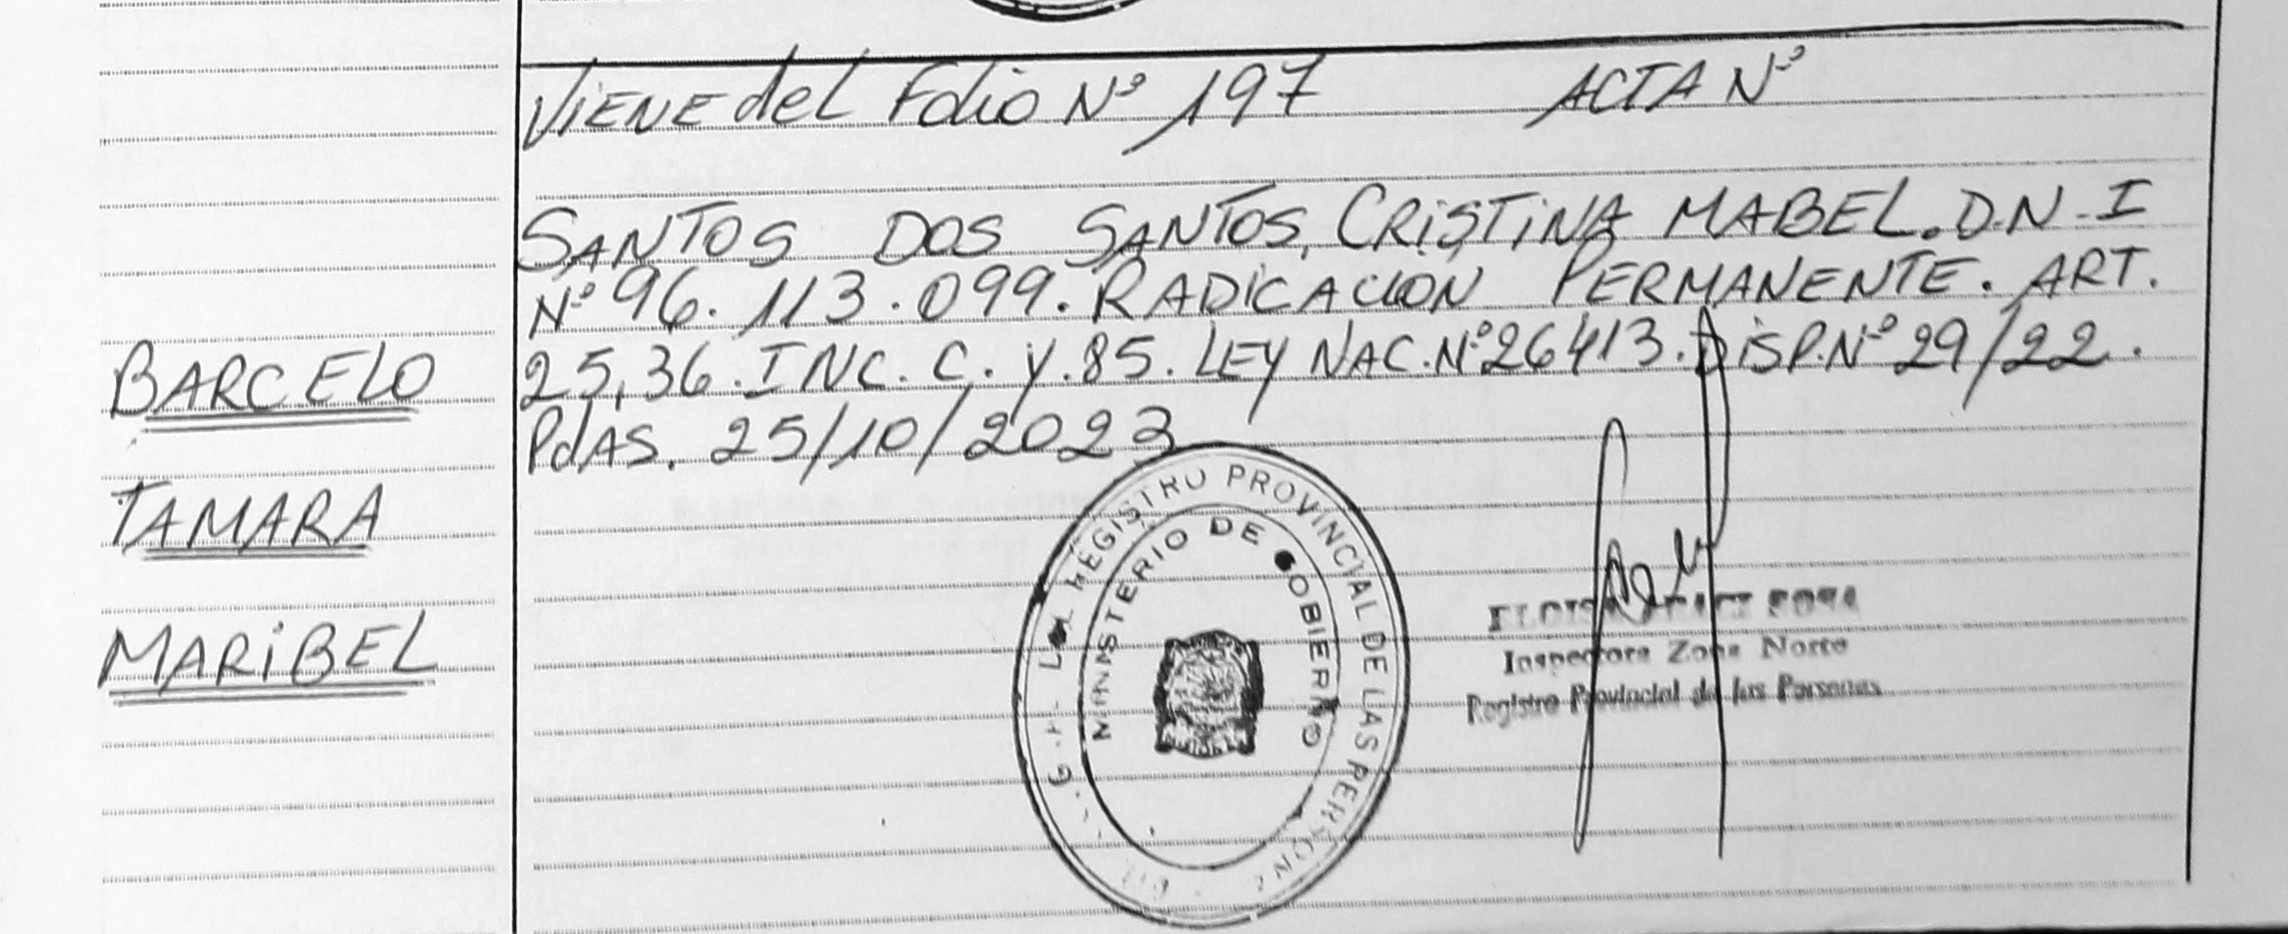 ViENE del Folio Nº 197 ACTA Nº
SANTOS DOS SANTOS, CRiSTiNA MABEL. D.N-I
Nº 96.113.099. RADiCACiON PERMANENTE. ART.
25,36. INC. C. y. 85. LEY NAC. Nº 26413. DiSP. Nº 29/22.
PdAS. 25/10/2023
BARCELO
TAMARA
MARiBEL
REGISTRO PROVINCIAL DE LAS PERSON
MINISTERIO DE GOBIERNO
Inspectora Zona Norte
Registro Provincial de las Personas